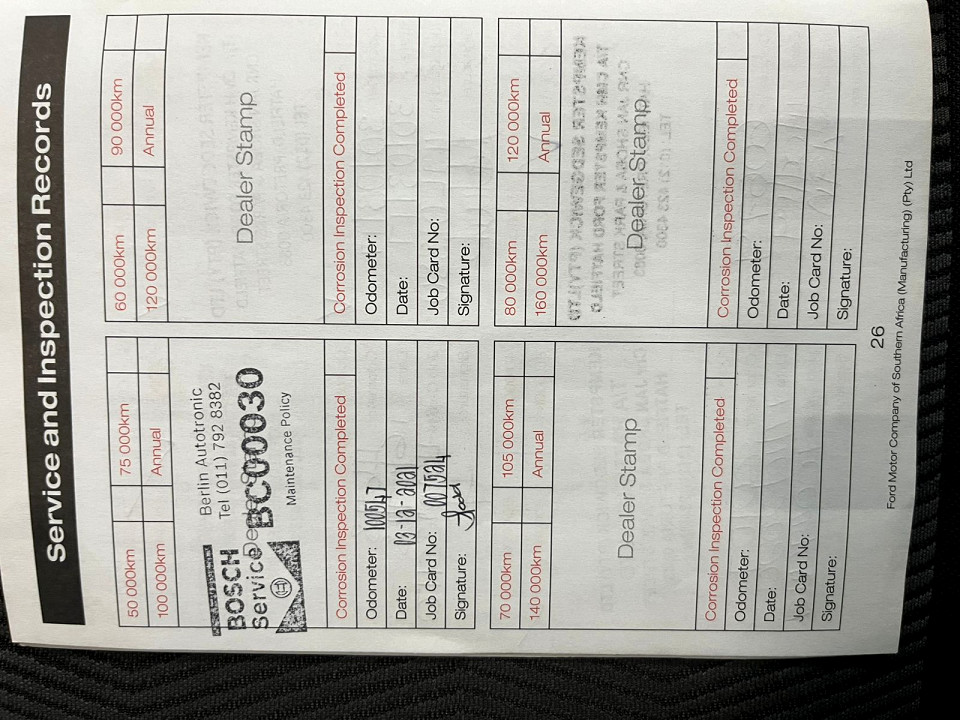 Service and Inspection Records
50 000km 75 000km
100 000km Annual
BOSCH
Service
Berlin Autotronic
Tel (011) 792 8382
BC00030
Maintenance Policy
Corrosion Inspection Completed
Odometer: 100547
Date: 13-12-2021
Job Card No: 007524
Signature:
60 000km 90 000km
120 000km Annual
Dealer Stamp
Corrosion Inspection Completed
Odometer:
Date:
Job Card No:
Signature:
70 000km 105 000km
140 000km Annual
Dealer Stamp
Corrosion Inspection Completed
Odometer:
Date:
Job Card No:
Signature:
80 000km 120 000km
160 000km Annual
Dealer Stamp
Corrosion Inspection Completed
Odometer:
Date:
Job Card No:
Signature:
26
Ford Motor Company of Southern Africa (Manufacturing) (Pty) Ltd